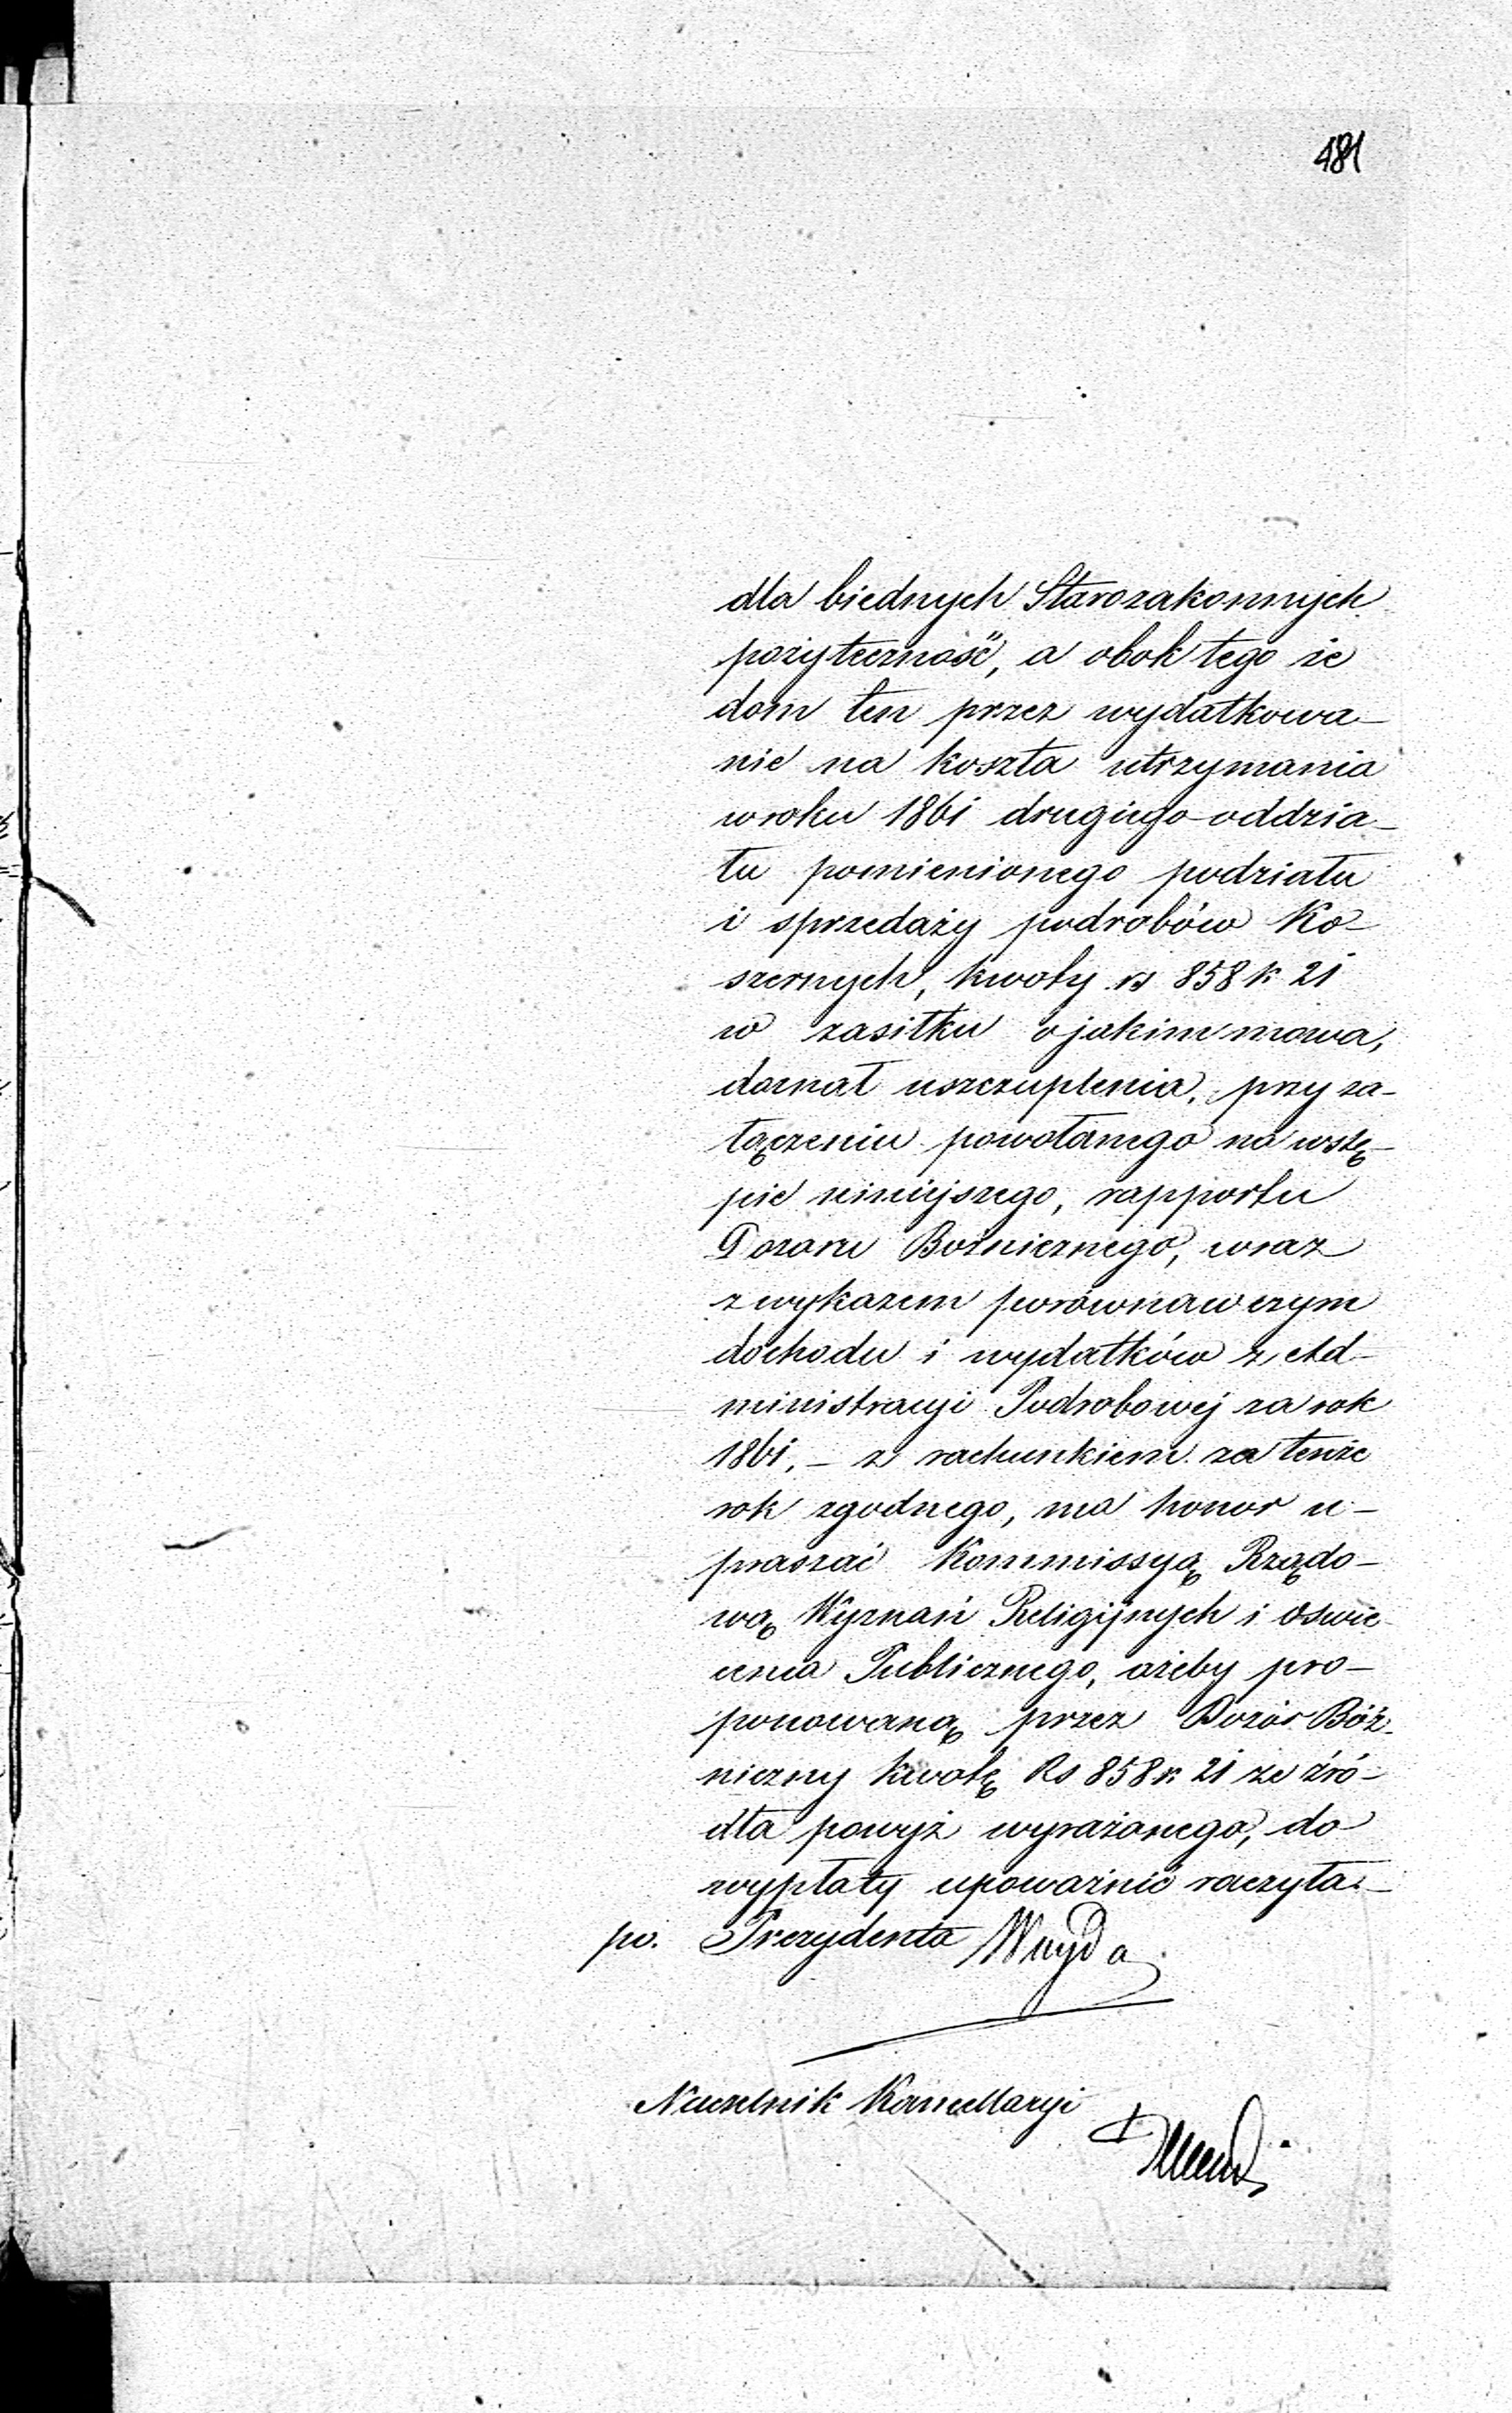 481
dla biednych Starozakonnych
pożyteczność, a obok tego że
dom ten przez wydatkowa-
nie na koszta utrzymania
w roku 1861 drugiego oddzia-
łu pomienionego podziału
i sprzedaży podrobów Ko-
szernych, kwoty rs 858 k 21
w zasiłku o jakim mowa,
doznał uszczuplenia, przy za-
łączeniu powołanego na wstę-
pie niniejszego, rapportu
Dozoru Bożnicznego, wraz
z wykazem porównawczym
dochodu i wydatków z Ad-
ministracyi Podrobowej za rok
1861. - z rachunkiem za tenże
rok zgodnego, ma honor u-
praszać Kommissyą Rządo-
wą Wyznań Religijnych i Oświe-
cenia Publicznego, ażeby pro-
ponowaną przez Dozór Bóż-
niczny kwotę Rs 858 k 21 ze źró-
dła powyż wyrażonego, do
wypłaty upoważnić raczyła. -
po. Prezydenta Woyda
Naczelnik Kancellaryi